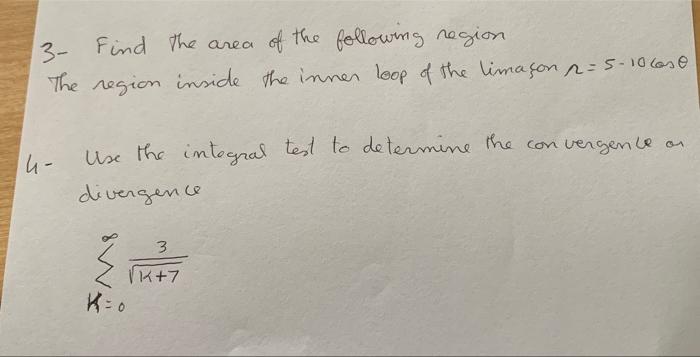 3- Find the area of the following region
The region inside the inner loop of the limaçon r = 5 - 10 cos θ
4- Use the integral test to determine the convergence or
divergence
∞
∑ 3/√(K+7)
K=0